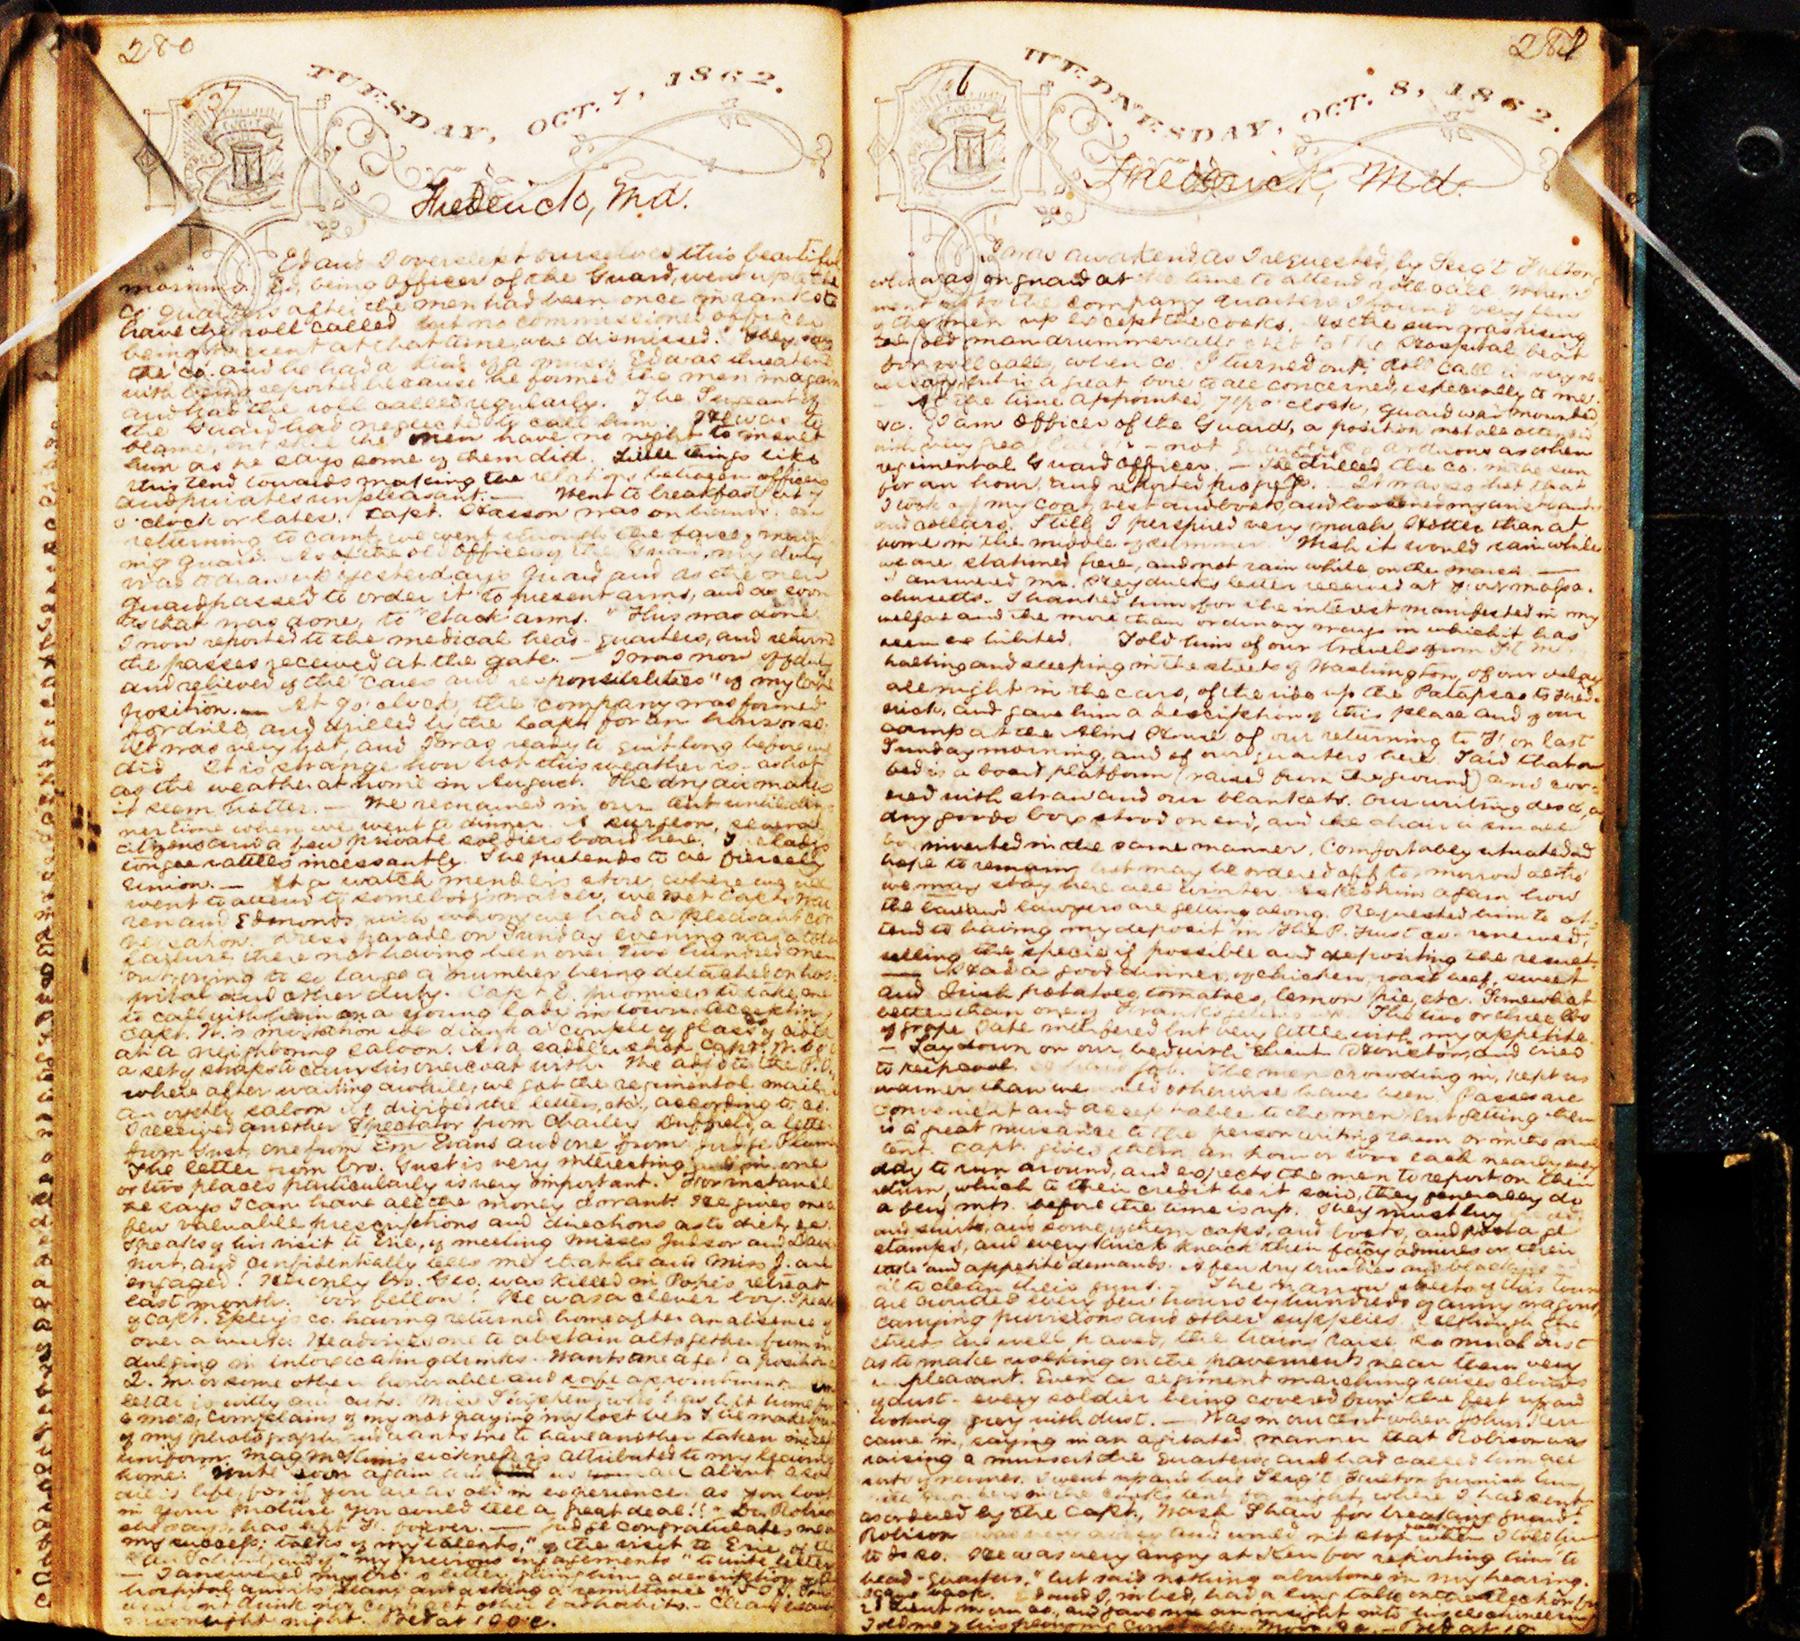 280
TUESDAY, OCT. 7, 1862.
37
Frederick, Md.
Ed and I overslept ourselves this beautiful
morning. Ed, being Officer of the Guard, went up to the
Co. quarters after the men had been once in ranks to
have the roll called but no commissioned officer
being present at that time, was dismissed.
the Co. and he had a kind of a muss. Ed was threatened
with being reported because he formed the men in again
and had the roll called regularly. The Sergeant of
the Guard had neglected to call him. He was to
blame, but still the men have no right to insult
him as he says some of them did. Little things like
this tend towards making the relations between officers
and privates unpleasant. — Went to breakfast at 7
o'clock or later. Capt. was on hand. On
returning to camp, we went through the farce, mount-
ing guard. As the old Officer of the Guard, my duty
was to draw up yesterday's Guard and as the new
Guard passed to order it to present arms, and as soon
as that was done, to "stack arms." This was done
I now reported to the medical head-quarters, and returned
the passes received at the gate. — I was now off duty
and relieved of the "cares and responsibilities" of my late
position. — At 9 o'clock, the company was formed
for drill, and drilled by the Capt. for an hour or so.
It was very hot, and I was ready to quit long before we
did. It is strange how hot this weather is — as hot
as the weather at home in August. The dry air makes
it seem hotter. — We remained in our tent until din-
ner time when we went a dinner. A surgeon, several
citizens and a few private soldiers board here.
tongue rattles incessantly. She pretends to be fiercely
Union. — At a watch mender's store, where we all
went to attend to somebody's watch, we met Capts War-
ren and Edmonds with whom we had a pleasant con-
versation. Dress parade on Sunday evening was a total
failure, there not having been over two hundred men
out, owing to so large a number being detached on hos-
pital and other duty. Capt E. promises to take me
to call with him on a young lady in town. Accepting
Capt. W.'s invitation we drank a couple of glasses of ale
at a neighboring saloon. At a saddler shop Capt. W. got
a set of straps to carry his overcoat with. We adj. to the P.O.
where after waiting awhile, we got the regimental mail.
an oyster saloon we divided the letters, etc., according to co.
I received another Spectator from Charley Duffield, a letter
from Gust, one from Em Evans and one from Judge
The letter from bro. Gust is very interesting and in one
or two places particularly is very important. For instance
he says I can have all the money I want. He gives me a
few valuable prescriptions and directions as to diet, &c.
Speaks of his visit to Erie, of meeting Misses Judson and
and confidentially tells me that he and Miss J. are
engaged! Her only bro. Geo. was killed in Pope's retreat
last month. Poor fellow! He was a clever boy. Speaks
of Capt. having returned home after an absence of
over a Advised me to abstain altogether from in-
dulging in intoxicating drinks. Wants me to get a position
Q. M. or some other honorable and safe appointment.
letter is witty and cute. Miss who has left home for
6 mos., complains of my not paying my lost bets. She makes fun
of my photograph and wants me to have another taken in
uniform. sickness is attributed to my leaving
home. Write soon again
is life, for if you are as old in experience as you look
in your picture you could tell a great deal!!
she says, has left forever. — Judge congratulates me on
my success; talks of "my talents," of the visit to Erie, of
and of "my previous engagements" to write letters
— I answered my bro's letter, giving him a description of
hospital and its plans and asking a remittance of
won't drink nor contract other bad habits. — Clear, beautiful
moonlight night. Bed at 10 o'c.
281
WEDNESDAY, OCT. 8, 1862.
6
Frederick, Md.
I was awakened as I requested, by Serg't Fulton
who was on guard at the time to attend roll call. When I
went up to the company quarters I found very few
of the men up except the cooks. As the sun was rising
the old man drummer attached to the Hospital beat
for roll call, when co. I turned out. Roll call is very ne-
cessary, but is a great bore to all concerned, especially to me.
— At the time appointed, 7½ o'clock, guard was mounted
&c. I am Officer of the Guard, a position not all
not quite so arduous as when
regimental Guard Officer. — We drilled the co. in the sun
for an hour, and reported progress. — It was so hot that
I took off my coat, vest and boots, and loosened my wristbands
and collars. Still, I perspired very much. Hotter than at
home in the middle of summer. Wish it would rain while
we are stationed here, and not rain while on the march. —
I answered Mr. letter received at
Thanked him for the interest manifested in my
welfare and the more than ordinary ways in which it has
been exhibited. Told him of our travels from
halting and sleeping in the streets of Washington, of our delay
all night in the cars, of the ride up the Patapsco to Fred-
erick, and gave him a description of this place and of our
camp at the Alms House, of our returning to F. on last
Sunday morning, and of our quarters here. Said that our
bed is a board platform (raised from the ground) and cov-
ered with straw and our blankets. Our writing desk, a
dry goods box stood on end, and the chair a small
box inverted in the same manner. Comfortably situated and
hope to remain, but may be ordered off to-morrow altho'
we may stay here all winter. Asked him again how
the law and lawyers are getting along. Requested him to at-
tend to having my deposit in the renewed,
selling the specie if possible and depositing the result.
— Had a good dinner of chicken, roast beef, sweet
and Irish potatoes, tomatoes, lemon pie, etc. Somewhat
better than one of The two or three lbs
of grapes I ate interfered but very little with my appetite.
— Lay down on our bed with Lieut Houston, and tried
to keep cool. The men crowding in, kept us
warmer than we would otherwise have been. Passes are
convenient and acceptable to the men, but getting them
is a great nuisance to the person writing them or in the same
tent. Capt. gives them an hour or two each nearly every
day to run around, and expects the men to report on their
return, which to their credit be it said, they generally do
a few mts. before the time is up. They must buy
and shirts, and some of them caps, and boots, and postage
stamps, and every knick knack their fancy admires or their
taste and appetite demands.
to clean their guns. — The narrow streets of this town
are crowded every few hours by hundreds of army wagons
carrying provisions and other supplies. Although the
streets are well paved, the trains raise so much dust
as to make walking on the pavements near them very
unpleasant. Even a regiment marching raises clouds
of dust — every soldier being covered from the feet up and
looking grey with dust. — Was in our tent when John Kerr
came in, saying in an agitated manner that Robison was
raising a muss at the quarters and had called him all
sorts of names. I went up and had Serg't
in the cook's tent for night, where I had sent
as ordered by the Capt., Wash Shaw for breaking guard.
Robison was very noisy and would n't stop when I told him
to do so. He was very angry at Kerr for reporting him "to
head-quarters," but said nothing about me in my hearing.
Ed and I, in bed, had a long talk
and gave me an insight into his electioneering
Told me of his Bed at 10